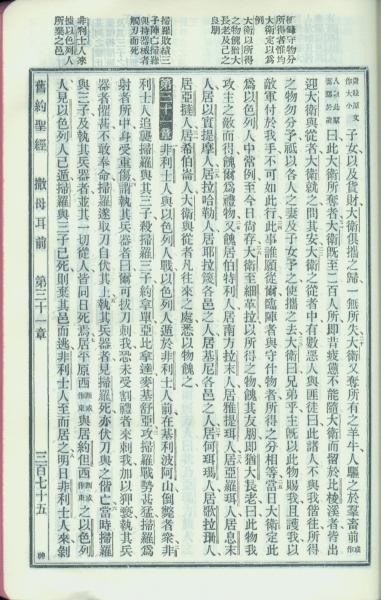 所得者惟均
大衛定以爲
例
大衛以所得
之物餽猶大
長老及己之
良朋
掃羅敗績三
子陣亡掃羅
與持器械者
觸刃而死
非利士人來
據以色列人
所棄之邑
子女以及貨財大衛俱攜之歸一無所失大衛又奪所有之羊牛人驅之於羣畜前
曰此大衛所奪者大衛旣至二百人所卽昔疲憊不能隨大衛而留於比梭溪者皆出
迎大衛與從者大衛就之問其安大衛之從者中有數惡人與匪徒曰此諸人不與我偕往所得
之物勿分予祇以各人之妻及子女予之使攜之去大衛曰兄弟乎主旣以此物賜我且護我以
敵軍付於我手不可如此行此事誰願從爾臨陣者與守什物者所得之分相等當日大衛定此
爲以色列人中常例至今日尙存大衛至細革拉以所得之物餽其友朋卽猶大長老曰此物我
攻主之敵而得餽爾爲禮物又餽居伯特利人居南方拉末人居雅提珥人居亞羅珥人居息末
人居以實提摩人居拉哈勒人居耶拉篾各邑之人居基尼各邑之人居何珥瑪人居歌拉珊人
居亞撻人居希伯崙人大衛與從者凡往來之處悉以物餽之
第三十一章 非利士人與以色列人戰以色列人遁於非利士人前在基利波阿山倒斃者衆非
利士人追襲掃羅與其三子殺掃羅三子約拿單亞比拿達麥基舒亞攻掃羅戰勢甚猛掃羅爲
射者所中身受重傷謂執其兵器者曰爾可拔刀刺我恐未受割禮者來刺我加以狎褻執其兵
器者懼甚不敢奉命掃羅遂取刀自伏其上執其兵器者見掃羅死亦伏刀與之偕亡當時掃羅
與三子及執其兵器者並其一切從人皆同日死焉居平原西與居約但西之以色列
人見以色列人已遁掃羅與三子已死則棄其邑而逃非利士人至而居之明日非利士人來剝
舊約聖經 撒母耳前 第三十一章 三百七十五